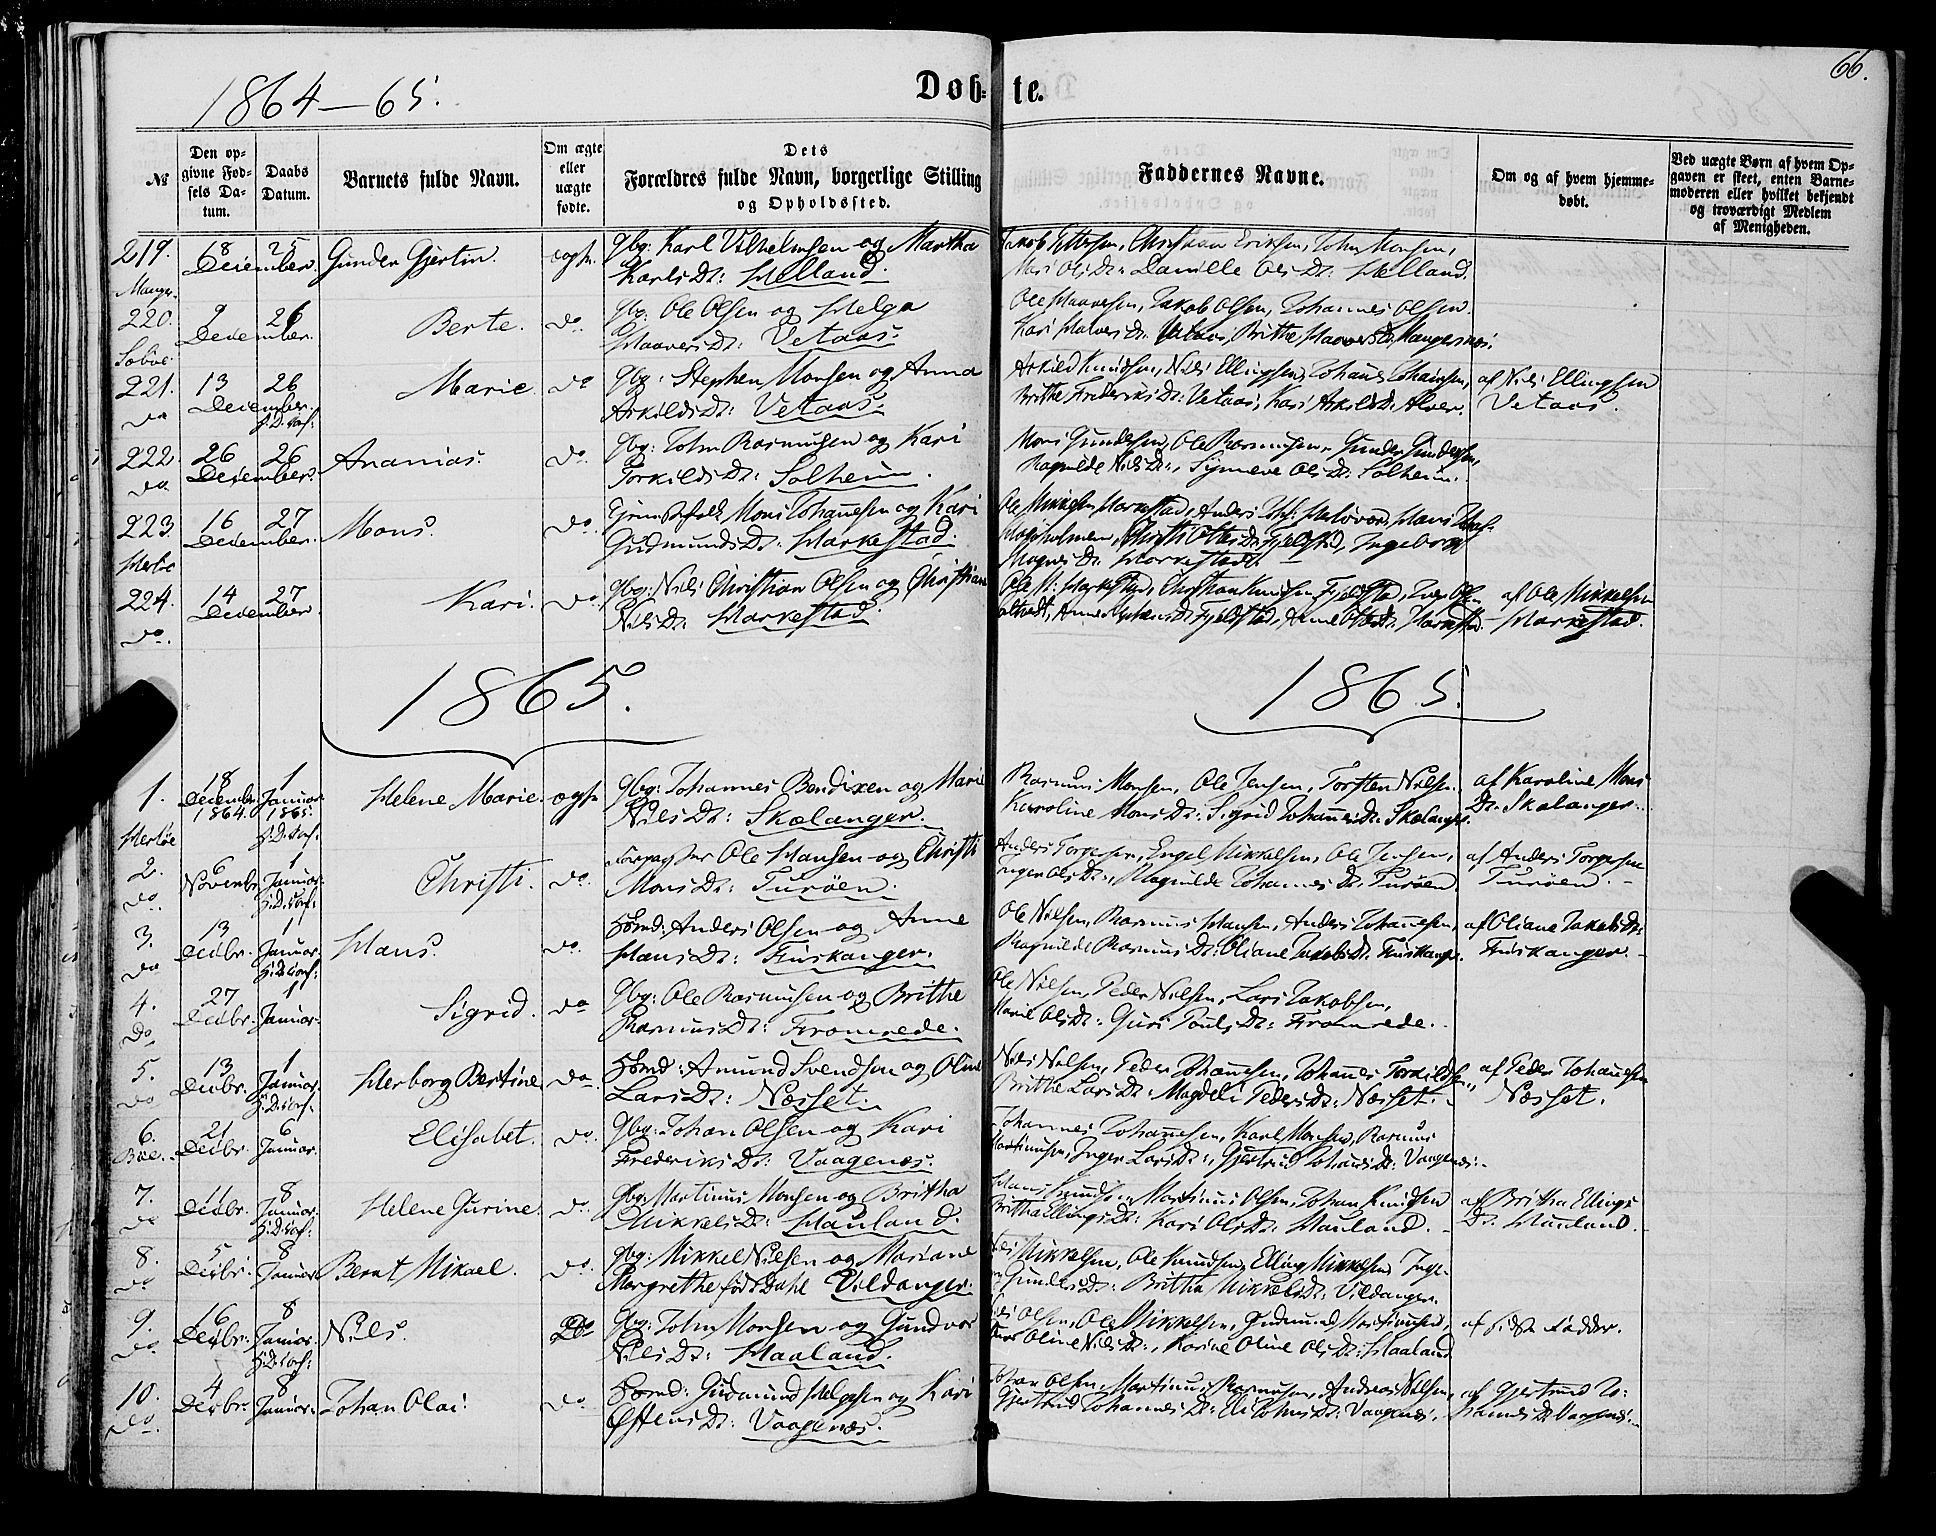 66.
1864-65.
Døb- te.
№
Den op-
givne Fød-
sels Da-
tum.
Daabs
Datum.
Barnets fulde Navn.
Om ægte
eller
uægte
fødte.
Dets
Forældres fulde Navn, borgerlige Stilling
og Opholdssted.
Faddernes Navne.
Om og af hvem hjemme-
døbt.
Ved uægte Børn af hvem Op-
gaven er skeet, enten Barne-
moderen eller hvilket bekjendt
og troværdigt Medlem
af Menigheden.
219. 68 December. 25 Gunder Gjertin. ægte. Gbg: Karl Vilhelmsen og Martha
Karls Dr: Helland.
Christian Eriksen, John Monsen,
Ols Dr: Danielle Ols Dr: Helland.
Manger.
220. 9 December. 26 Berte. do Gbg: Ole Olsen og Helga
Haavers Dr: Vetaas.
Ole Haaversen, Jakob Olsen, Johannes Olsen
Kari Halvers Dr. Vetaas, Brithe Haavers Dr. Mangersnes.
Sæbøe.
221. 13 December. 26 Marie. do Gbg: Stephen Monsen og Anna
Askilds Dr: Vetaas.
Askild Knudsen, Nils Ellingsen, Johans Johansen,
Brithe Frederiks Dr: Vetaas, Kari Askilds Dr. Alver.
af Nils Ellingsen
Vetaas.
do
222. 26 December. 26 Ananias. do. Gbg: John Rasmusen og Kari
Torkilds Dr: Solheim.
Mons Gundersen, Ole Rasmusen, Gunder Gundersen,
Ragnilde Nils Dr:, Synneve Ols Dr: Solheim.
do
223. 16 December. 27 Mons. do. Mons Johannesen og Kari
Gudmunds Dr: Harkestad.
Ole Mikkelsen Harkestad, Anders
Ingeborg
Magnes Dr. Harkestad.
Herløe
224. 14 December. 27 Kari. do. Gbg: Nils Christian Olsen og Christiane
Nils Dr: Harkestad.
Christian Knudsen Fjeldstad,
Fjeldstad, Anne
af Ole Mikkelsen
Harkestad.
do.
1865. 1865.
1. 18 Decembr 1864. 1 Januar 1865. Helene Marie. ægte Gbg: Johannes Bendixen og Marie
Nils Dr: Skælanger.
Rasmus Monsen, Ole Jensen, Torsten Nilsen.
Karoline Mons Dr: Sigrid Johannes Dr: Skælanger.
af Karoline Mons
Dr. Skælanger.
Herløe
2. 6 Novembr. 1 Januar. Christi. do. Ole Hansen og Christi
Mons Dr: Turøen.
Anders Torgersen, Engel Mikkelsen, Ole Jensen,
Inger Ols Dr:, Ragnilde Johannes Dr. Turøen.
af Anders Torgersen
Turøen.
do.
3. 13 Decbr. 1 Januar. Hans. do. Anders Olsen og Anne
Hans Dr: Fuskanger.
Ole Nilsen, Rasmus Hansen, Anders Johannesen,
Ragnilde Rasmus Dr: Oliane Jakobs Dr. Fuskanger.
af Oliane Jakobs Dr:
Fuskanger.
do
4. 27 Decbr. 1 Januar. Sigrid. do Gbg: Ole Rasmusen og Brithe
Rasmus Dr: Fromrede.
Ole Nilsen, Peder Nilsen, Lars Jakobsen,
Marie Ols Dr: Guri Pouls Dr: Fromrede.
do.
5. 13 Decbr. 1 Januar. Herborg Bertine. do. Amund Svendsen og Oline
Lars Dr: Næsset.
Nils Nilsen, Peder Johannesen, Johannes Torkildsen,
Brithe Lars Dr: Magdeli Peders Dr: Næsset.
af Peder Johannesen
Næsset.
do
6. 21 Decbr. 6 Januar. Elisabet. do. Gbg: Johan Olsen og Kari
Frederiks Dr: Vaagenæs.
Johannes Johannesen, Karl Monsen, Rasmus
Martinusen, Inger Lars Dr:, Gjertrud Johannes Dr: Vaagenæs.
Bøe.
7. 11 Decbr. 8 Januar. Helene Gurine. do. Gbg: Martinus Monsen og Britha
Mikkels Dr: Hauland.
Martinus Olsen, Johan Knudsen
Britha Ellings Dr: Kari Ols Dr: Hauland.
af Britha Ellings
Dr. Hauland.
do
8. 5 Decbr. 8 Januar. Bernt Mikael. do. Gbg: Mikkel Nilsen og Mariane
Margrethe født Dahl Vildanger.
Nils Mikkelsen, Ole Knudsen, Elling Mikkelsen, Inge-
Gunders Dr: Britha Mikkels Dr: Vildanger.
do
9. 16 Decbr. 8 Januar. Niels. Do Gbg: John Monsen og Gundvor
Nils Dr: Haaland.
Olsen, Ole Mikkelsen, Gudmund Martinusen,
Oline Nils Dr:, Karine Oline Ols Dr: Haaland
af sidste Fadder.
do
10. 4 Decbr. 8 Januar. Johan Olai. do Gudmund Helgesen og Kari
Østens Dr: Vaagenæs.
Johan Olsen, Martinus Rasmusen, Andreas Nilsen,
Gjertrud Johannes Dr: Eli Johns Dr: Vaagenæs.
af Gjertrud Jo-
hannes Dr Vaagenæs.
do.